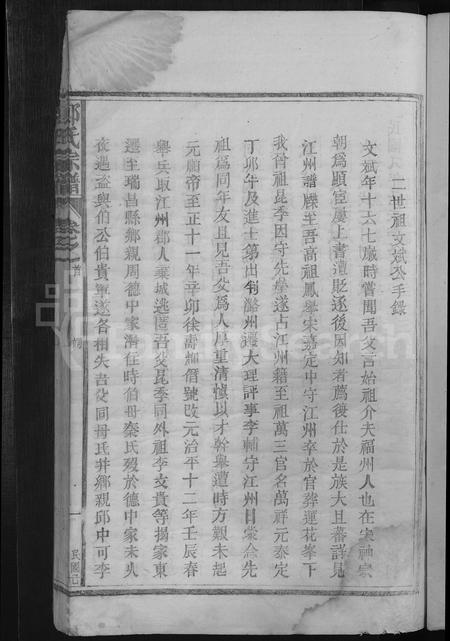 二世祖文斌公手錄
文斌年十六七歲時嘗聞吾父言始祖介夫福州人也在宋神宗
朝為顯宦屢上書遭貶逐後因知者薦後仕於是族大且蕃詳見
江州譜牒至吾高祖鳳舉宋嘉定中守江州卒於官葬蓮花峯下
我曾祖昆季因守先塋遂占江州籍至祖萬三官名萬祥元泰定
丁卯年及進士第出判潞州遷大理評事李輔守江州日蒙念先
祖為同年友且見吾父為人厚重清慎以才幹舉遭時方艱未起
元順帝至正十一年辛卯徐壽輝僭號改元治平十二年壬辰春
舉兵取江州郡人棄城逃匿吾父昆季同外祖李文貴等揭家東
遷至瑞昌縣鄉親周德中家潛住時伯母秦氏歿於德中家未火
夜遇盜與伯公伯貴軍遂各相失吾父同母氏并鄉親邱中可李
鄭氏宗譜
卷之一
首
一
民國元